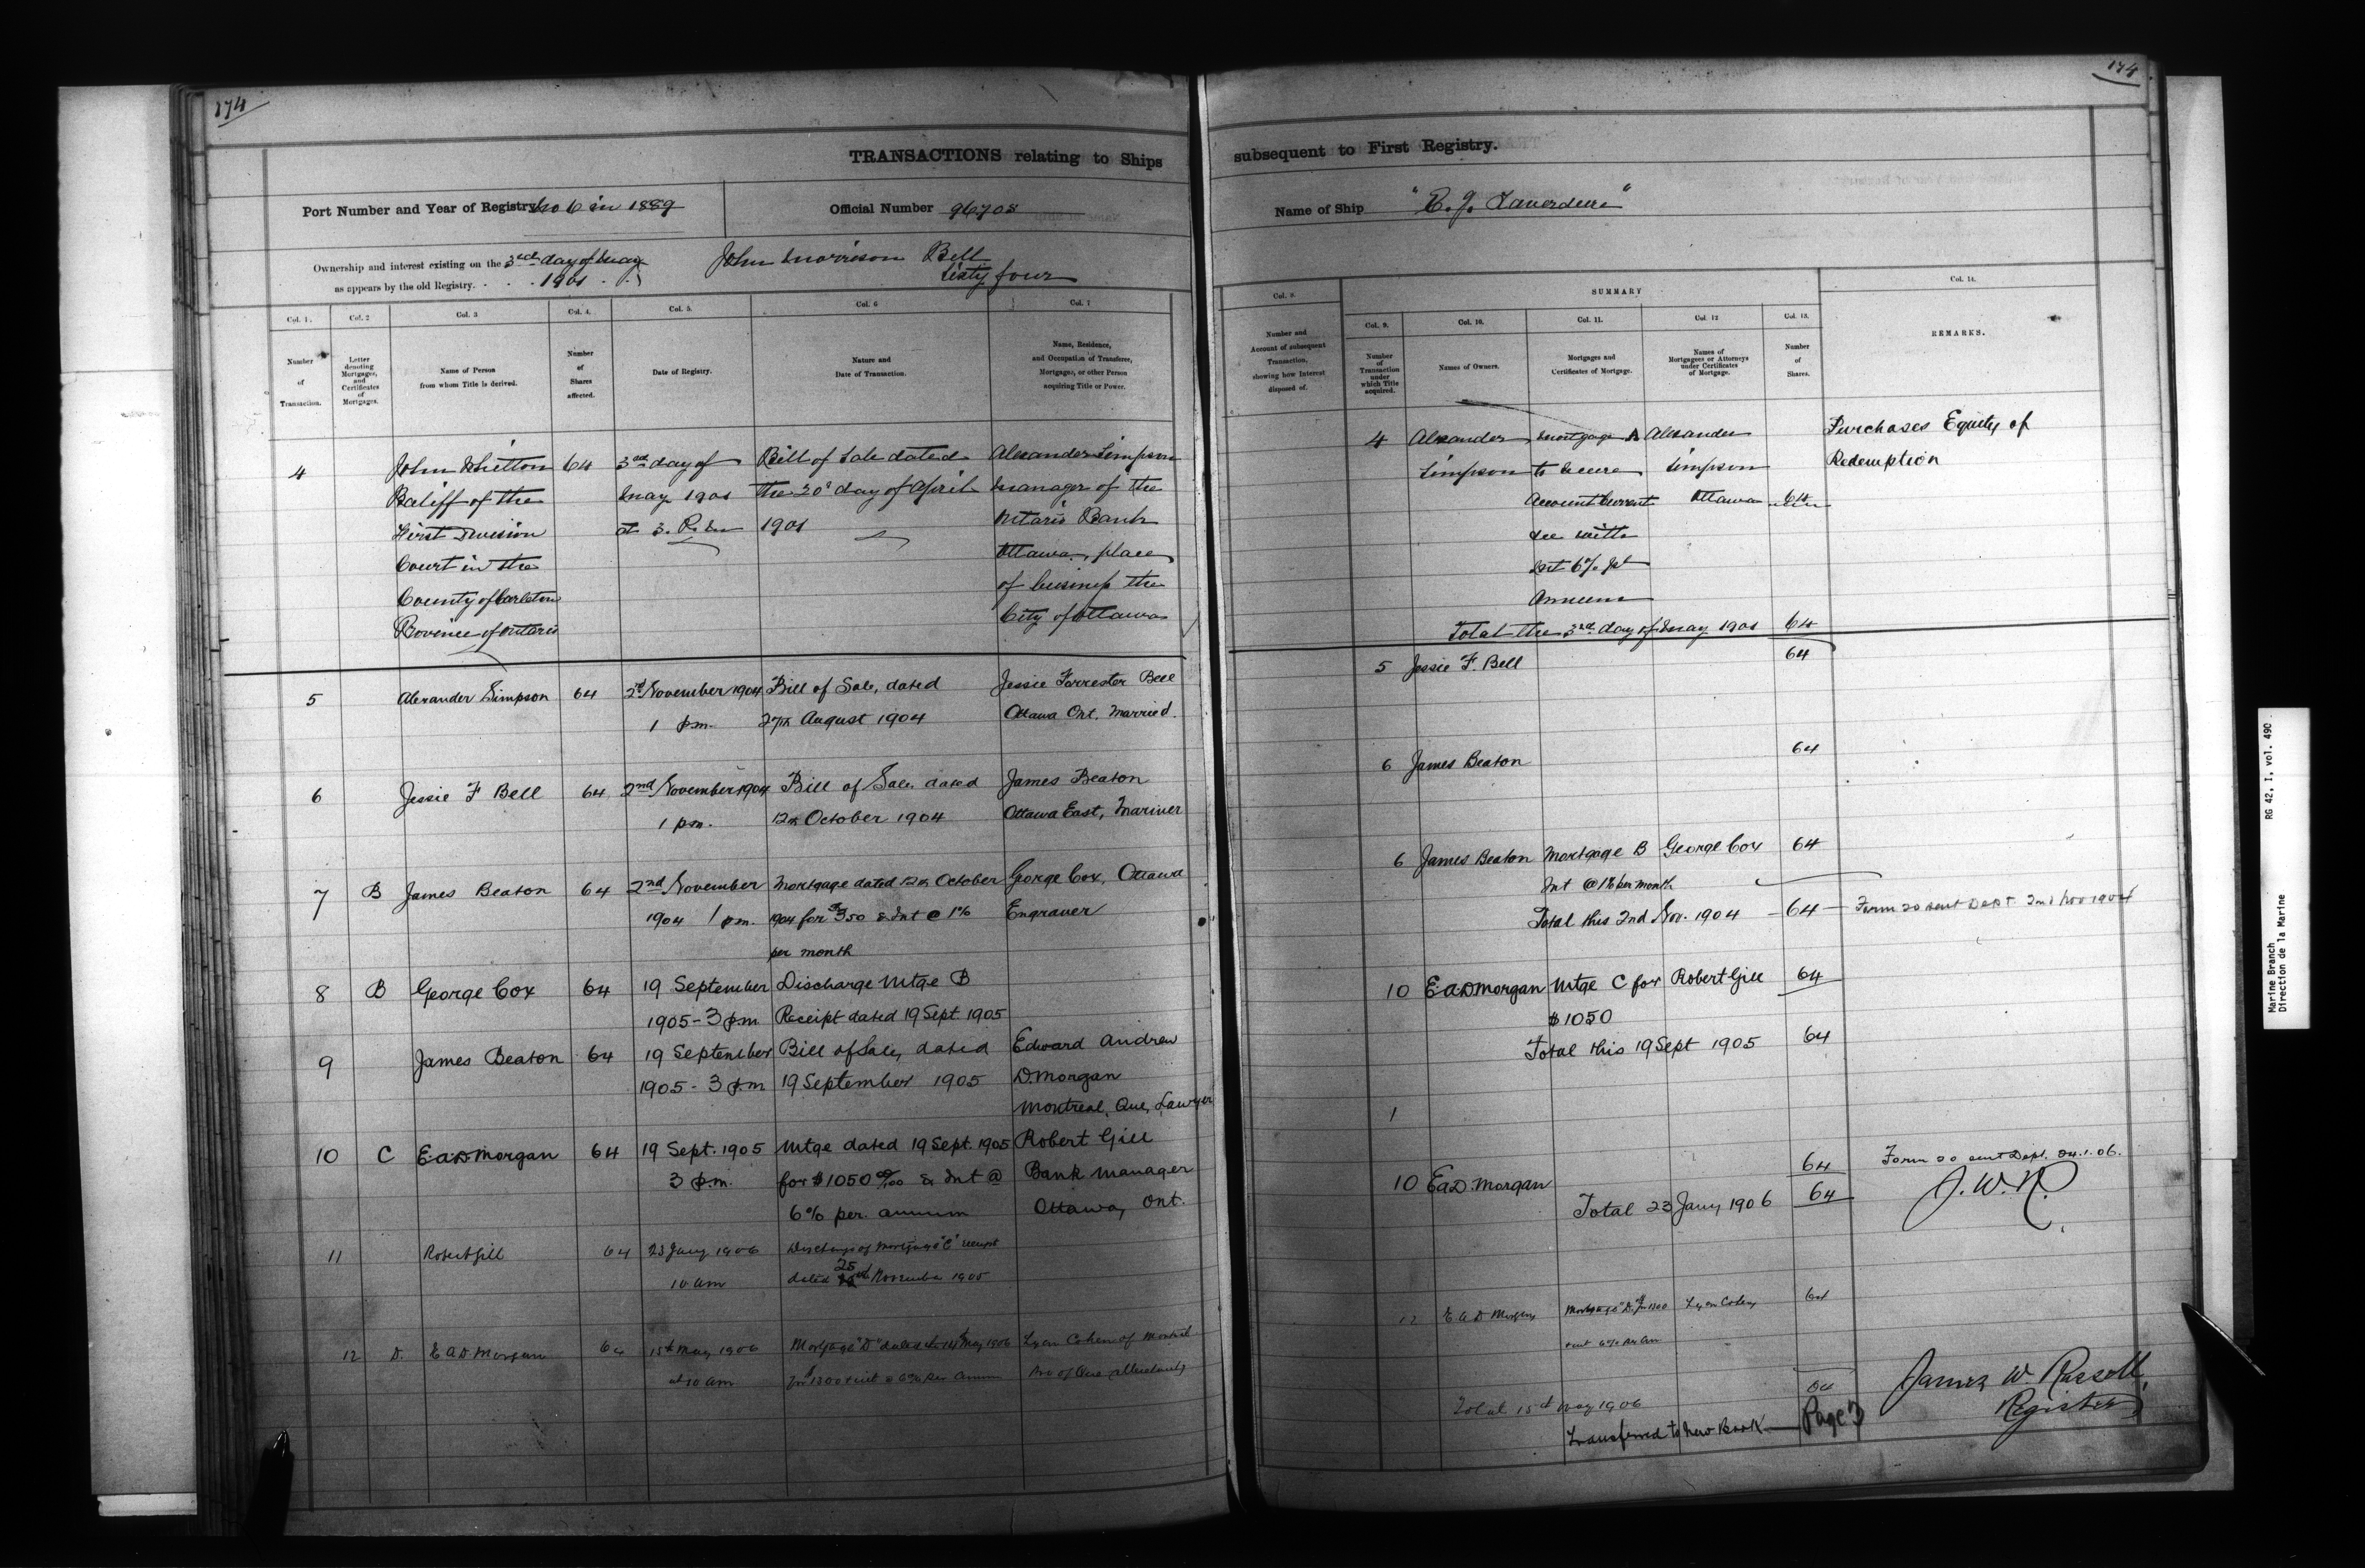 174
TRANSACTIONS relating to Ships
Port Number and Year of Registry No 6 in 1889
Official Number 96708
Ownership and interest existing on the 3rd day of May
as appears by the old Registry. . . . 1901 . .
John Morrison Bell
Sixty four
Col. 1.
Number
of
Transaction.
Col. 2
Letter
denoting
Mortgages,
and
Certificates
of
Mortgages.
Col. 3
Name of Person
from whom Title is derived.
Col. 4.
Number
of
Shares
affected.
Col. 5.
Date of Registry.
Col. 6
Nature and
Date of Transaction.
Col. 7
Name, Residence,
and Occupation of Transferee,
Mortgagee, or other Person
acquiring Title or Power.
4
John Whitton
Bailiff of the
First Division
Court in the
County of Carleton
Province of Ontario
64
3rd day of
May 1901
at 3. P.M
Bill of Sale dated
the 30th day of April
1901
Alexander Simpson
Manager of the
Ontario Bank
Ottawa, place
of business the
City of Ottawa
5
Alexander Simpson
64
2nd November 1904
1 p.m.
Bill of Sale, dated
27th August 1904
Jessie Forrester Bell
Ottawa Ont. Married.
6
Jessie F Bell
64
2nd November 1904
1 p.m.
Bill of Sale. dated
12th October 1904
James Beaton
Ottawa East, Mariner
7
B
James Beaton
64
2nd November
1904 1 p.m.
Mortgage dated 12th October
1904 for $350 & Int @ 1%
per month
George Cox, Ottawa
Engraver
8
B
George Cox
64
19 September
1905 - 3 p.m
Discharge Mtge B
Receipt dated 19 Sept. 1905
9
James Beaton
64
19 September
1905 - 3 p.m
Bill of Sale, dated
19 September 1905
Edward Andrew
D. Morgan
Montreal, Que, Lawyer
10
C
E a D Morgan
64
19 Sept. 1905
3 p.m.
Mtge dated 19 Sept. 1905
for $1050 00/100 & Int @
6% per. annum
Robert Gill
Bank Manager
Ottawa, Ont.
11
Robert Gill
64
23 Jany 1906
10 am
Discharge of Mortgage "C" receipt
25
dated November 1905
12
D.
E A D Morgan
64
15th May 1906
at 10 am
Mortgage "D" dated 14 May 1906
for $1300 & int @ 6% per annum
Lyon Cohen of Montreal
174
subsequent to First Registry.
Name of Ship
"E. J. Laverdure"
Col. 8.
Number and
Account of subsequent
Transaction,
showing how Interest
disposed of.
SUMMARY
Col. 9.
Number
of
Transaction
under
which Title
acquired.
Col. 10.
Names of Owners.
Col. 11.
Mortgages and
Certificates of Mortgage.
Col. 12
Names of
Mortgagees or Attorneys
under Certificates
of Mortgage.
Col. 13.
Number
of
Shares.
Col. 14.
REMARKS.
4
Alexander
Simpson
Mortgage A
to secure
Account Current
see with
Int 6% per
Annum
Alexander
Simpson
Ottawa
64
Purchases Equity of
Redemption
Total the 3rd day of May 1901
64
5
Jessie F. Bell
64
6
James Beaton
64
6
James Beaton
Mortgage B
Int @ 1% per month
George Cox
64
Total this 2nd Nov. 1904
64
Form 20 sent Dept 2nd Nov 1904
10
E a D Morgan
Mtge C for
$1050
Robert Gill
64
Total this 19 Sept 1905
64
1
10
E a D. Morgan
64
Total 23 Jany 1906
64
Form 20 sent Dept. 24.1.06.
J.W.R.
12
E A D Morgan
Mortgage "D" for $1300
int 6% per an
Lyon Cohen
64
Total 15th May 1906
64
Transferred to New Book
Page 3
James W. Russell,
Registrar
Marine Branch RG 42, I, vol. 490
Direction de la Marine